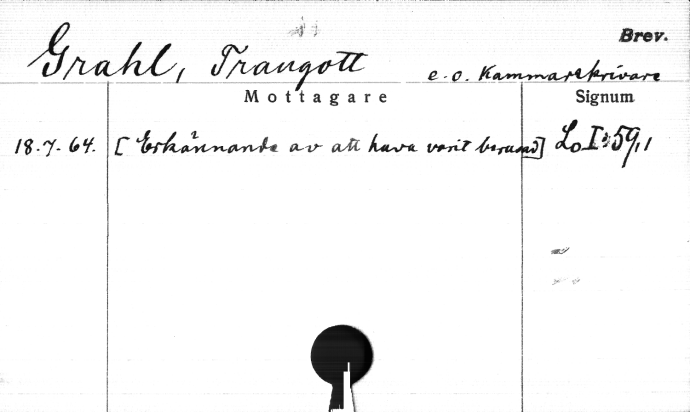 Brev.
Grahl, Traugott
e. o. Kammarskrivare
Mottagare
Signum
18.7.64. [Erkännande av att hava varit berusad] Lo I:59,1